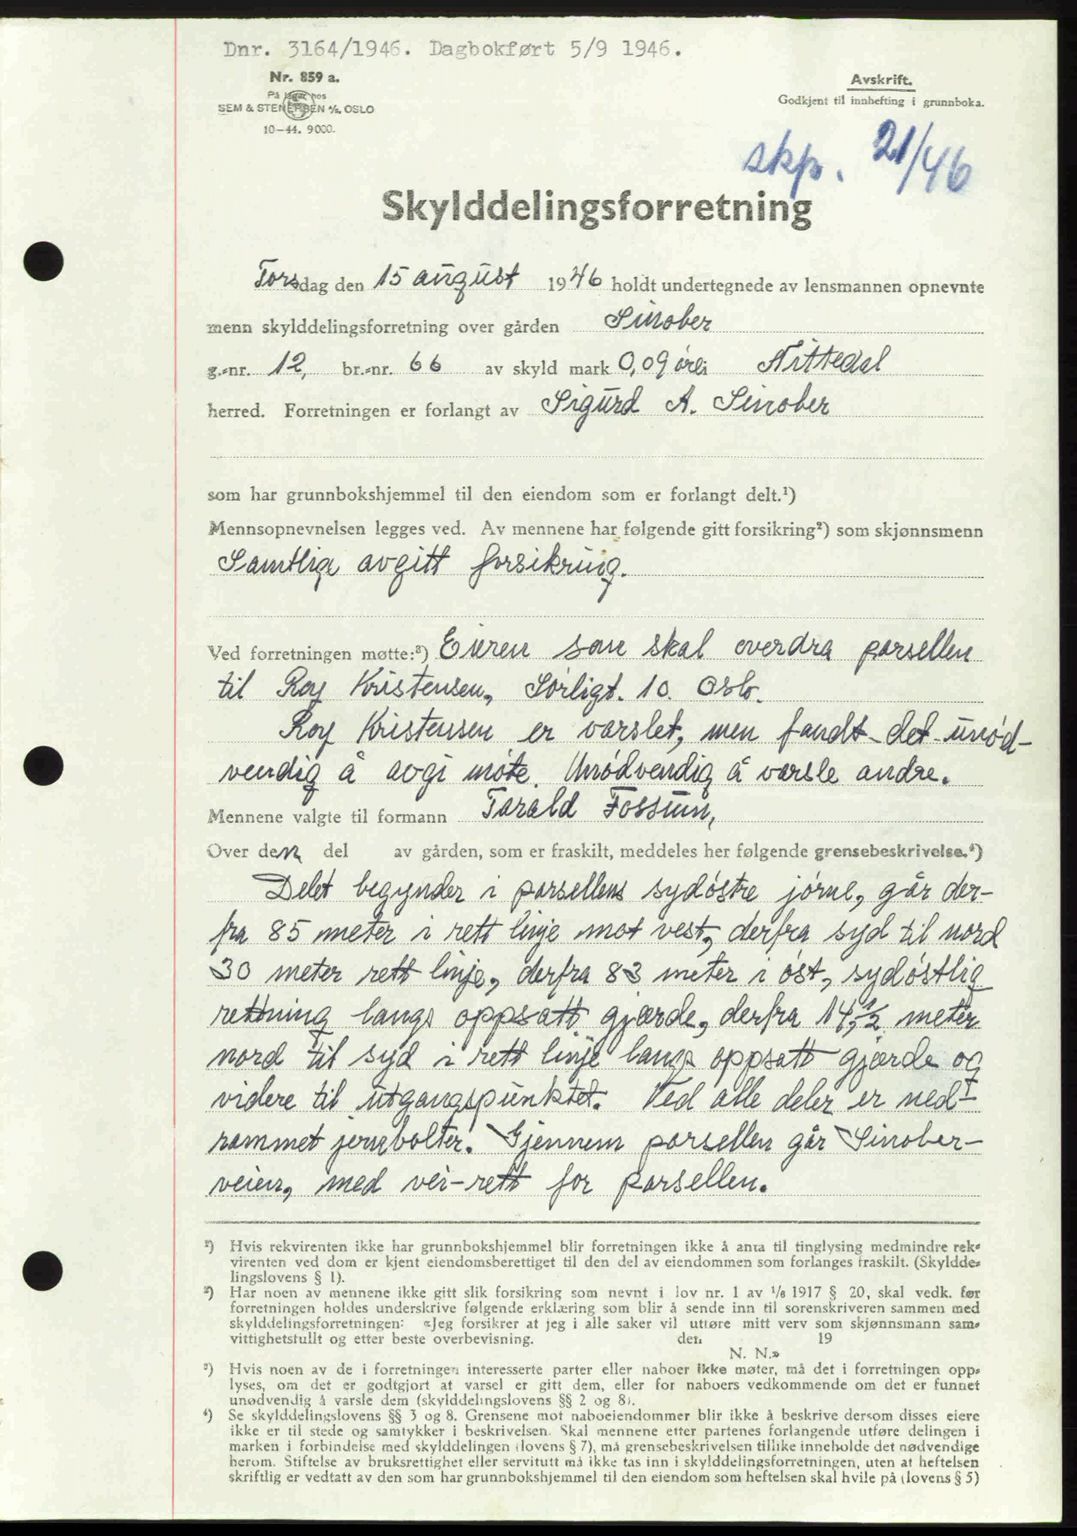 Dnr. 3164/1946. Dagbokført 5/9 1946.
Nr. 859 a.
På lager hos
SEM & STENERSEN A/S. OSLO
10-44. 9000.
Avskrift.
Godkjent til innhefting i grunnboka.
skp. 21/46
Skylddelingsforretning
Torsdag den 15 august 1946 holdt undertegnede av lensmannen opnevnte
menn skylddelingsforretning over gården Sinober
g.-nr. 12, br.-nr. 66 av skyld mark 0,09 øre i Nittedal
herred. Forretningen er forlangt av Sigurd A. Sinober
som har grunnbokshjemmel til den eiendom som er forlangt delt.¹)
Mennsopnevnelsen legges ved. Av mennene har følgende gitt forsikring²) som skjønnsmenn
Samtlige avgitt forsikring.
Ved forretningen møtte:³) Eieren som skal overdra parsellen
til Roy Kristensen, Sørligt. 10. Oslo.
Roy Kristensen er varslet, men fandt det unød-
vendig å avgi møte. Unødvendig å varsle andre.
Mennene valgte til formann Tarald Fossum,
Over den del av gården, som er fraskilt, meddeles her følgende grensebeskrivelse.⁴)
Delet begynder i parsellens sydøstre jørne, går der-
fra 85 meter i rett linje mot vest, derfra syd til nord
30 meter rett linje, derfra 83 meter i øst, sydøstlig
rettning langs oppsatt gjærde, derfra 14,½ meter
nord til syd i rett linje langs oppsatt gjærde og
videre til utgangspunktet. Ved alle deler er ned-
rammet jernbolter. Gjennem parsellen går Sinober-
veien, med vei-rett for parsellen.
¹) Hvis rekvirenten ikke har grunnbokshjemmel blir forretningen ikke å anta til tinglysing medmindre rek-
virenten ved dom er kjent eiendomsberettiget til den del av eiendommen som forlanges fraskilt. (Skyldde-
lingslovens § 1).
²) Har noen av mennene ikke gitt slik forsikring som nevnt i lov nr. 1 av 1/6 1917 § 20, skal vedk. før
forretningen holdes underskrive følgende erklæring som blir å sende inn til sorenskriveren sammen med
skylddelingsforretningen: «Jeg forsikrer at jeg i alle saker vil utføre mitt verv som skjønnsmann sam-
vittighetsfullt og etter beste overbevisning. den 19
N. N.»
³) Hvis noen av de i forretningen interesserte parter eller naboer ikke møter, må det i forretningen opp-
lyses, om det er godtgjort at varsel er gitt dem, eller for naboers vedkommende om det er funnet
unødvendig å varsle dem (skylddelingslovens §§ 2 og 8).
⁴) Se skylddelingslovens §§ 3 og 8. Grensene mot naboeiendommer blir ikke å beskrive dersom disses eiere
ikke er til stede og samtykker i beskrivelsen. Skal mennene etter partenes forlangende utføre delingen i
marken i forbindelse med skylddelingen (lovens § 7), må grensebeskrivelsen tillike inneholde det nødvendige
herom. Stiftelse av bruksrettighet eller servitutt må ikke tas inn i skylddelingsforretningen, uten at heftelsen
skriftlig er vedtatt av den som har grunnbokshjemmel til den eiendom som heftelsen skal hvile på (lovens § 5)